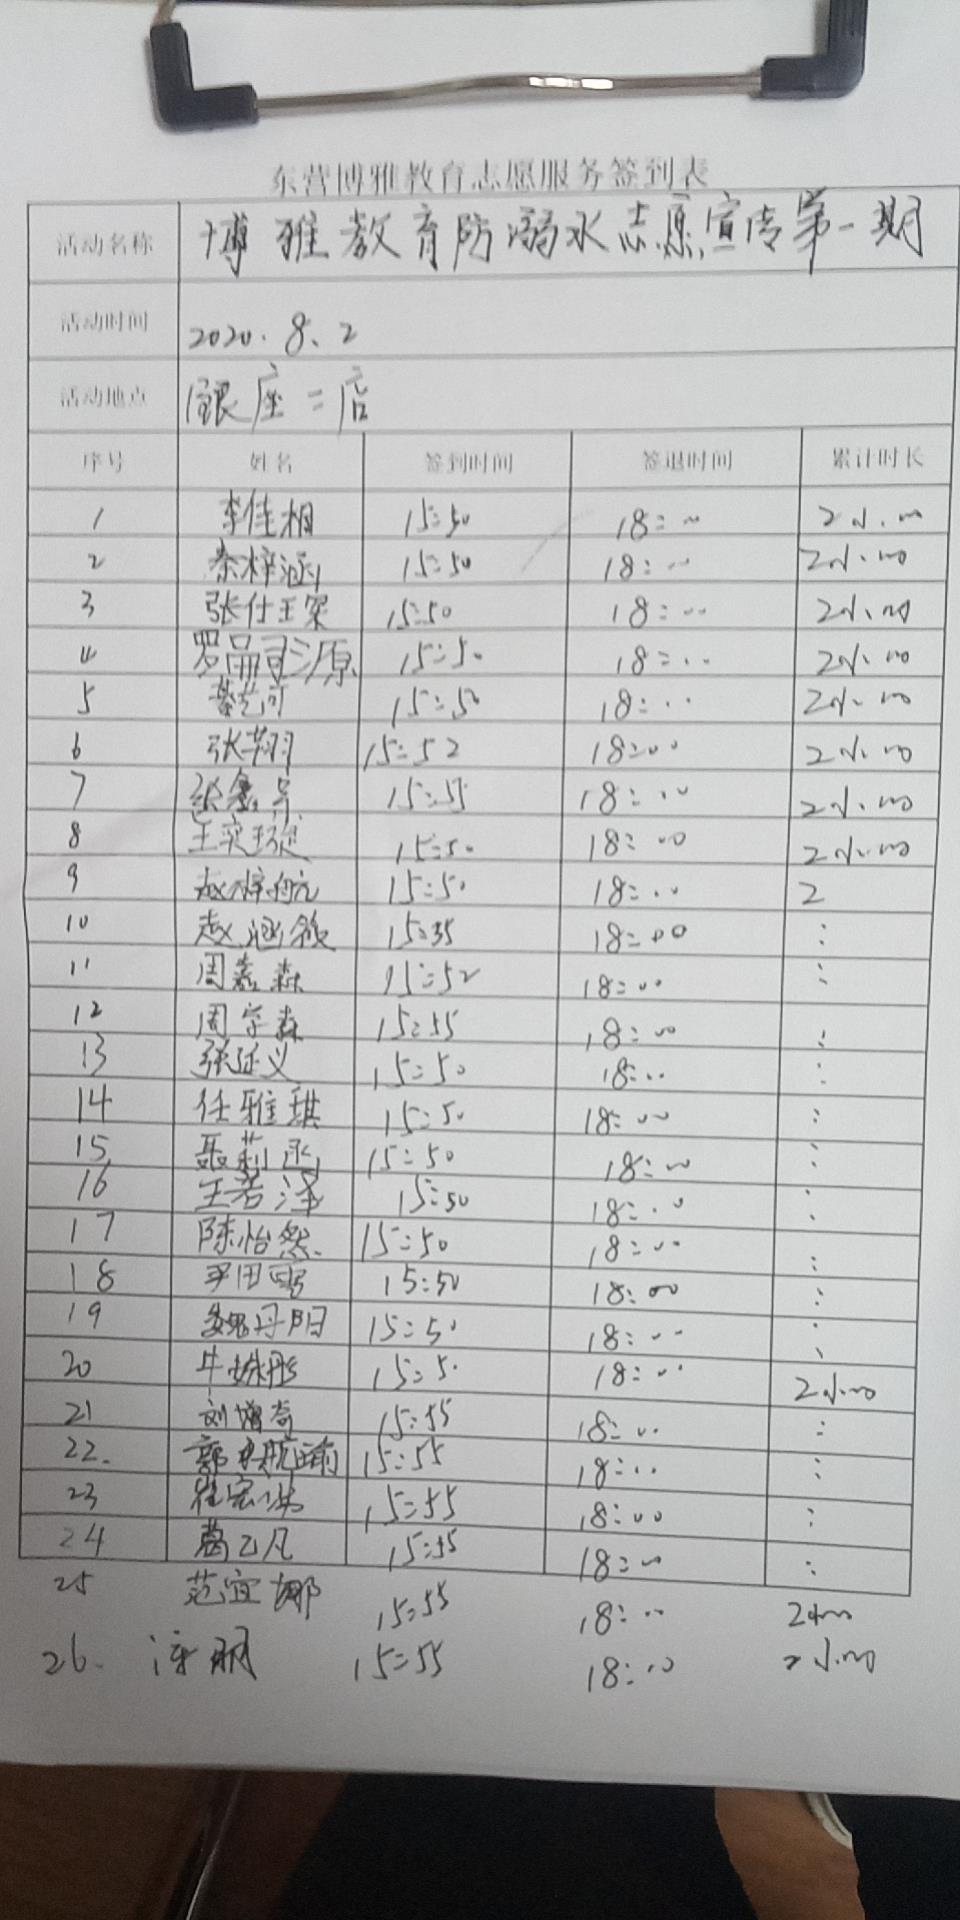 东营博雅教育志愿服务签到表
活动名称 博雅教育防溺水志愿宣传第一期
活动时间 2020.8.2
活动地点 银座二店
序号 姓名 签到时间 签退时间 累计时长
1 李佳相 15:50 18:00 2小.00
2 秦梓涵 15:50 18:00 2小.00
3 张仕 15:50 18:00 2小.00
4 15:50 18:00 2小.00
5 艺可 15:50 18:00 2小.00
6 张翔 15:52 18:00 2小.00
7 张鑫 15:55 18:00 2小.00
8 王奕璇 15:50 18:00 2小.00
9 赵梓航 15:50 18:00 2
10 赵涵 15:35 18:00 :
11 周嘉森 15:52 18:00 :
12 周宇森 15:55 18:00 :
13 张延义 15:50 18:00 :
14 任雅琪 15:50 18:00 :
15 聂莉函 15:50 18:00 :
16 王若泽 15:50 18:00 :
17 陈怡然 15:50 18:00 :
18 田雨 15:50 18:00 :
19 魏丹阳 15:50 18:00 :
20 牛姝彤 15:50 18:00 2小00
21 刘增奇 15:55 18:00 :
22. 郭 15:55 18:00 :
23 崔宏 15:55 18:00 :
24 葛乙凡 15:55 18:00 :
25 范宜娜 15:55 18:00 2小00
26. 15:55 18:00 2小.00